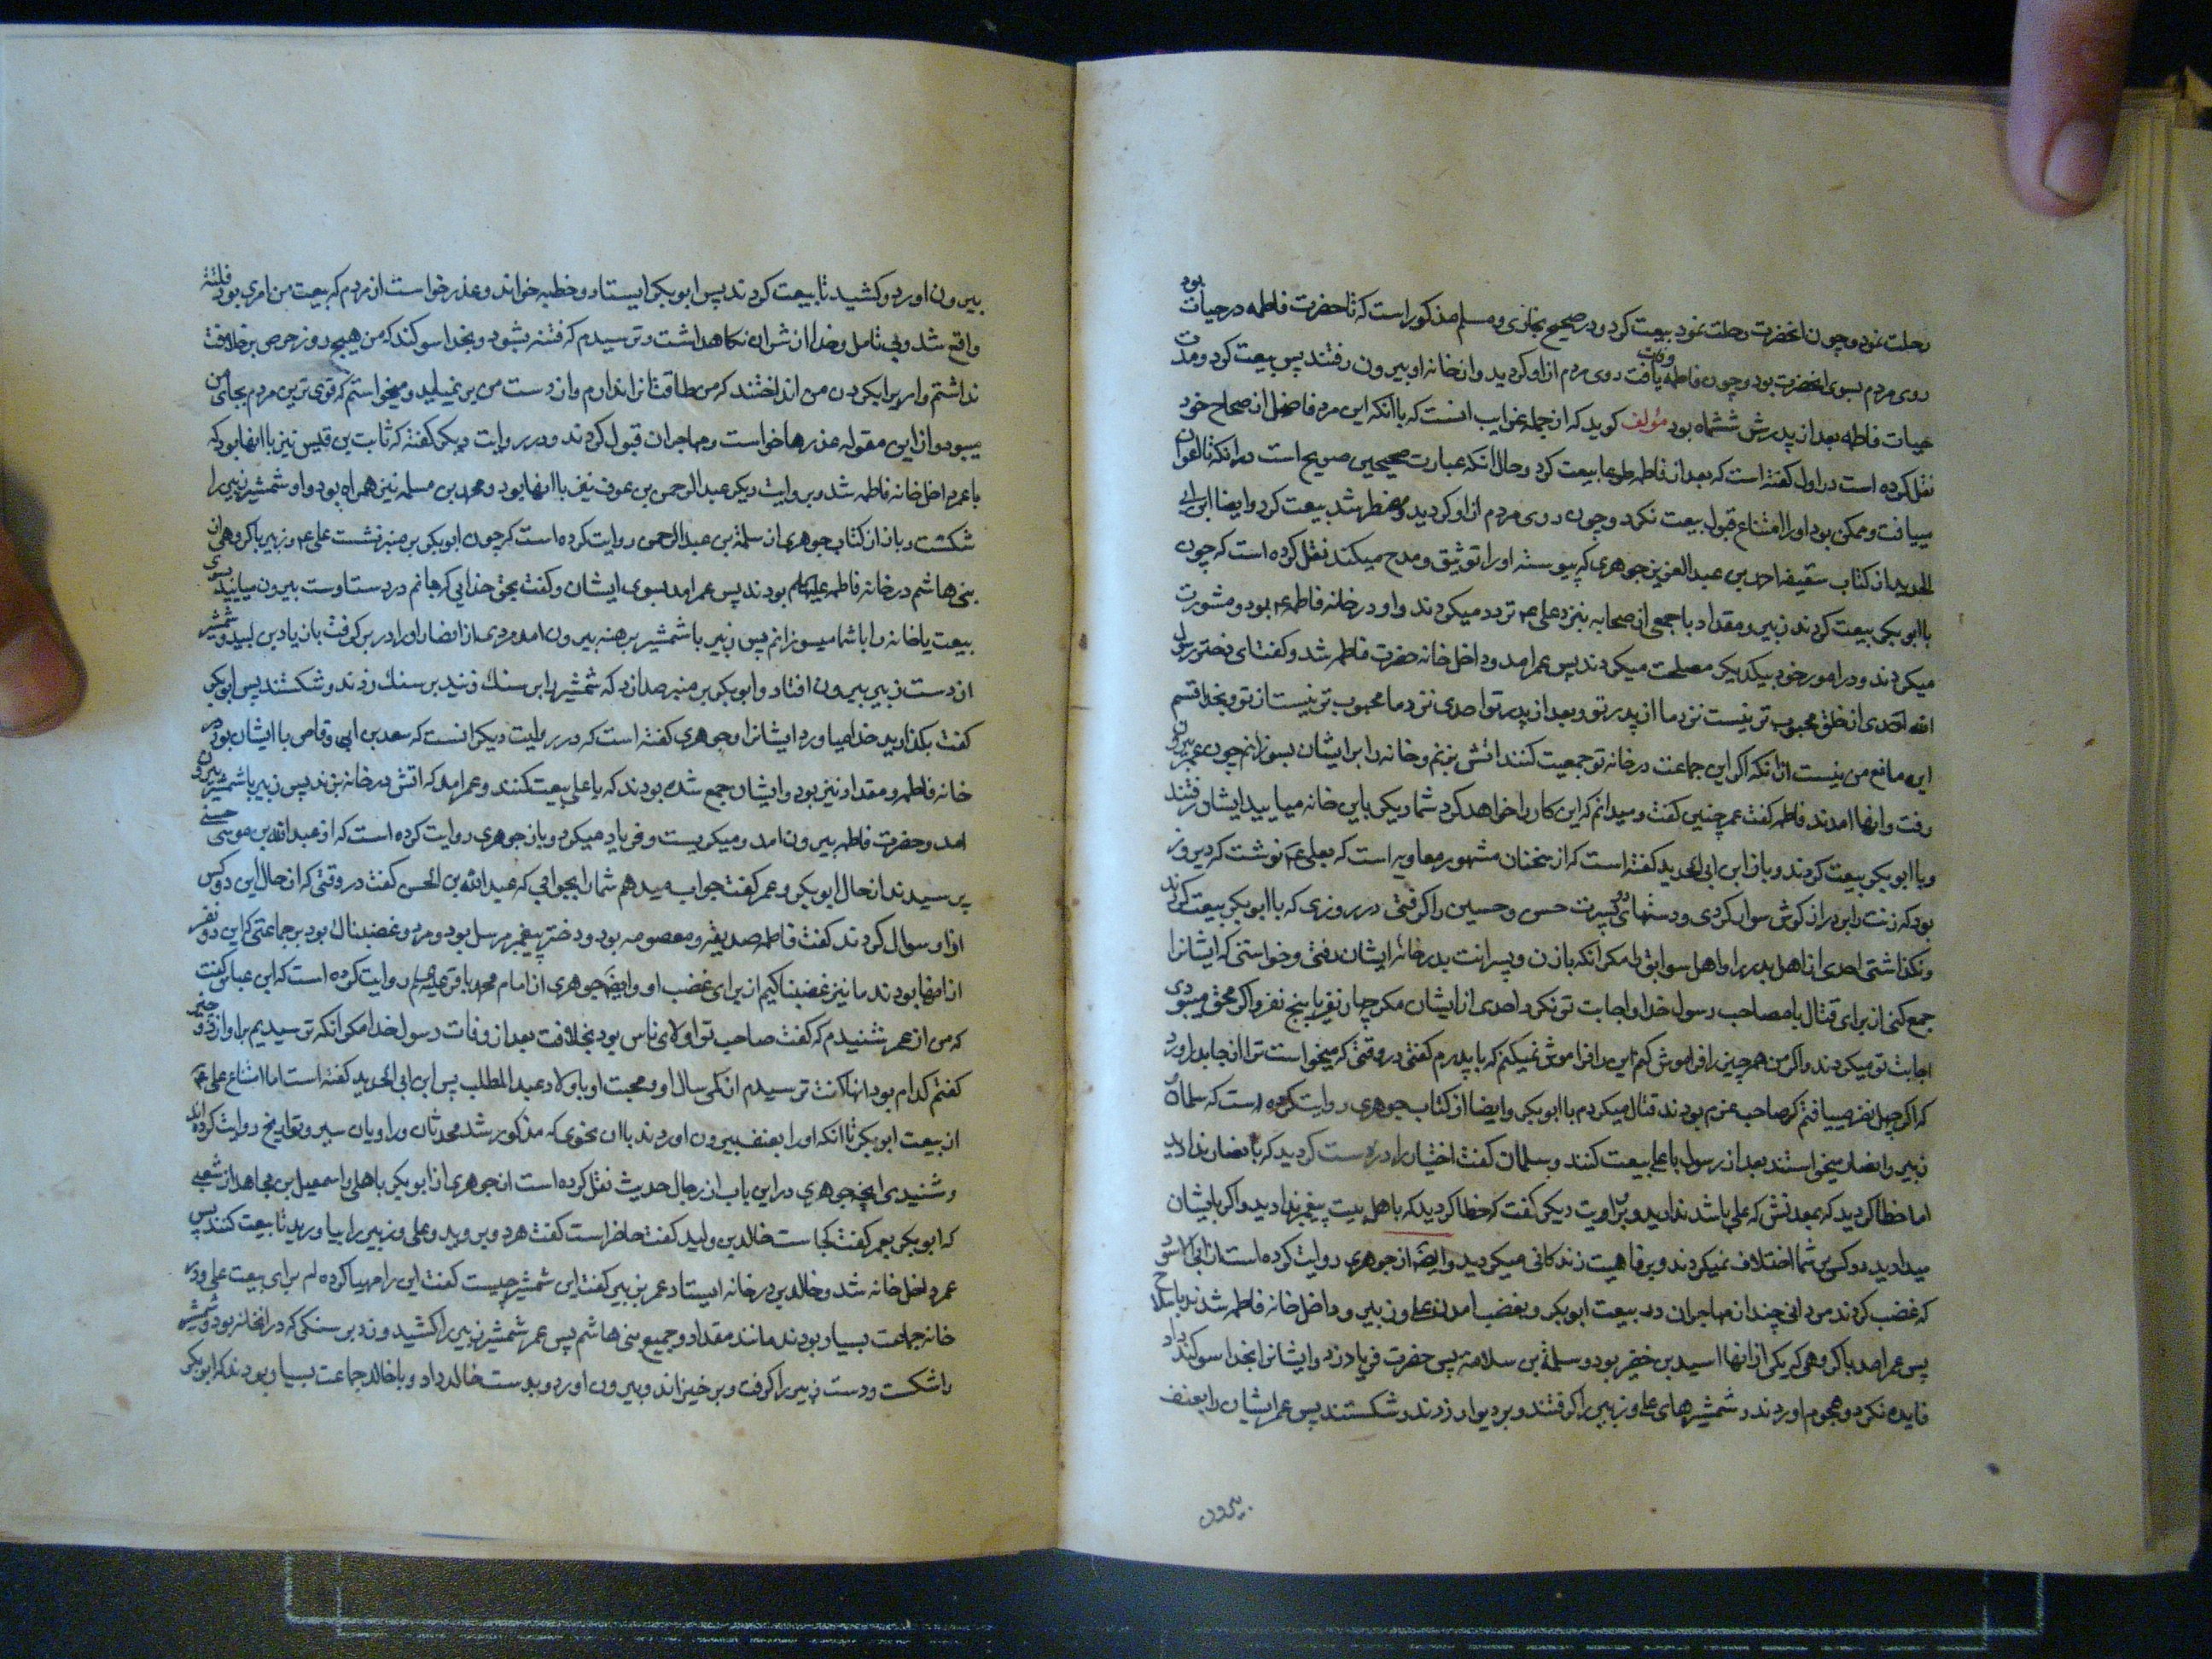 رحلت نمود وچون انحضرت رحلت نمود بیعت کرد و در صحیح بخاری و مسلم مذکور است که تا حضرت فاطمه در حیات بود
روی مردم بسوی انحضرت بود وچون فاطمه وفات یافت روی مردم از او کردید و از خانه او بیرون رفتند پس بیعت کرد و مدت
حیات فاطمه بعد از پدرش ششماه بود مؤلف کوید که از جمله غرایب انست که با انکه این مرد فاضل از صحاح خود
نقل کرده است در اول کفته است که بعد از فاطمه طوعا بیعت کرد و حال انکه عبارت صحیحین صریح است در انکه تا اعوان
مییافت و ممکن بود او را امتناع قبول بیعت نکرد وچون روی مردم از او کردید و مضطر شد بیعت کرد و ایضا ابن ابی
الحدید از کتاب سقیفه احمد بن عبد العزیز جوهری که پیوسته او را توثیق و مدح میکند نقل کرده است که چون
با ابو بکر بیعت کردند زبیر و مقداد با جمعی از صحابه بنزد علی ع تردد میکردند و او در خانه فاطمه ع بود و مشورت
میکردند و در امور خود بیکدیکر مصلحت میکردند پس عمر امد و داخل خانه حضرت فاطمه شد و کفت ای دختر رسول
الله احدی از خلق محبوب تر نیست نزد ما از پدر تو و بعد از پدر تو احدی نزد ما محبوب تر نیست از تو و بخدا قسم
این مانع من نیست از انکه اکر این جماعت در خانه تو جمعیت کنند اتش بزنم و خانه را بر ایشان بسوزانم چون عمر بیرون
رفت و انها امدند فاطمه کفت عمر چنین کفت و میدانم که این کار را خواهد کرد شما دیکر باین خانه میایید ایشان رفتند
و با ابو بکر بیعت کردند و باز ابن ابی الحدید کفته است که از سخنان مشهور معاویه است که بعلی ع نوشت که دیروز
بود که زنت را بر دراز کوش سوار کردی و دستهای دو پسرت حسن و حسین را کرفتی در روزی که با ابو بکر بیعت کردند
و نکذاشتی احدی از اهل بدر را و اهل سوابق را مکر انکه با زن و پسرانت بدر خانه ایشان رفتی و خواستی که ایشانرا
جمع کنی از برای قتال با مصاحب رسول خدا و اجابت تو نکرد احدی از ایشان مکر چهار نفر یا پنج نفر و اکر محق میبودی
اجابت تو میکردند و اکر من هر چیز را فراموش کنم این را فراموش نمیکنم که با پدرم کفتی در وقتی که میخواست ترا از جا بدراورد
که اکر چهل نفر مییافتم که صاحب عزم بودند قتال میکردم با ابو بکر و ایضا از کتاب جوهری روایت کرده است که سلمان و
زبیر و انصار میخواستند بعد از رسول با علی بیعت کنند و سلمان کفت اختیار را درست کردید که بانصار ندادید
اما خطا کردید که بمعدنش که علی باشد ندادید و بر وایت دیکر کفت که خطا کردید که باهل بیت پیغمبر ندادید و اکر بایشان
میدادید دو کس بر شما اختلاف نمیکردند و برفاهیت زندکانی میکردید و ایضا از جوهری روایت کرده است از ابی الاسود
که غضب کردند مردانی چند از مهاجران در بیعت ابو بکر و بغضب امدند علی و زبیر و داخل خانه فاطمه شدند با سلاح
پس عمر امد با کروهی که یکی از انها اسید بن خضیر بود و سلمة بن سلامه پس حضرت فریاد زد و ایشانرا بخدا سوکند داد
فایده نکرد و هجوم اوردند و شمشیرهای علی و زبیر را کرفتند و بر دیوار زدند و شکستند پس عمر ایشان را بعنف
بیرون
بیرون اورد و کشید تا بیعت کردند پس ابو بکر ایستاد و خطبه خواند و عذر خواست از مردم که بیعت من امری بود فلتة
واقع شد و بی تامل و خدا از شر ان نکاهداشت و ترسیدم که فتنه بشود و بخدا سوکند که من هیچ روز حرص بر خلافت
نداشتم و امر برا بکردن من انداختند که من طاقت انرا ندارم و از دست من بر نمیاید و میخواستم که قوی ترین مردم بجای من
میبود و از این مقوله عذرها خواست و مهاجران قبول کردند و در روایت دیکر کفته که ثابت بن قیس نیز با انها بود که
با عمر داخل خانه فاطمه شد و بروایت دیکر عبد الرحمن بن عوف نیز با انها بود و محمد بن مسلمه نیز همراه بود و او شمشیر زبیر را
شکست و باز از کتاب جوهری از سلمة بن عبد الرحمن روایت کرده است که چون ابو بکر بر منبر نشست علی ع و زبیر با کروهی از
بنی هاشم در خانه فاطمه علیها بودند پس عمر امد بسوی ایشان و کفت بحق خدایی که جانم در دست اوست بیرون میایید بسوی
بیعت یا خانه را با شما میسوزانم پس زبیر با شمشیر برهنه بیرون امد مردی از انصار او را در بر کرفت با زیاد بن لبید و شمشیر
از دست زبیر بیرون افتاد و ابو بکر بر منبر صدا زد که شمشیر را بر سنک زنید بر سنک زدند و شکستند پس ابو بکر
کفت بکذارید خدا میاورد ایشانرا و جوهری کفته است که در روایت دیکر انست که سعد بن ابی وقاص با ایشان بود در
خانه فاطمه و مقداد نیز بود و ایشان جمع شده بودند که با علی بیعت کنند و عمر امد که اتش در خانه بزند پس زبیر با شمشیر بیرون
امد و حضرت فاطمه بیرون امد و میکریست و فریاد میکرد و باز جوهری روایت کرده است که از عبد الله بن موسی حسنی
پرسیدند از حال ابو بکر و عمر کفت جواب میدهم شما را بجوابی که عبد الله بن الحسن کفت در وقتی که از حال این دو کس
از او سوال کردند کفت فاطمه صدیقه و معصومه بود و دختر پیغمبر مرسل بود و مرد و غضبناک بود بر جماعتی که این دو نفر
از انها بودند ما نیز غضبناکیم از برای غضب او و ایضا جوهری از امام محمد باقر علیه السلم روایت کرده است که ابن عباس کفت
که من از عمر شنیدم که کفت صاحب تو اولای ناس بود بخلافت بعد از وفات رسول خدا مکر انکه ترسیدیم بر او از دو چیز
کفتم کدام بود انها کفت ترسیدم از کمی سال او و محبت او با اولاد عبد المطلب پس ابن ابی الحدید کفته است اما امتناع علی ع
از بیعت ابو بکر تا انکه او را بعنف بیرون اوردند بان نحوی که مذکور شد محدثان و راویان سیر و تواریخ روایت کرده اند
و شنیدی انچه جوهری در این باب از رجال حدیث نقل کرده است از جوهری از ابو بکر باهلی و اسمعیل بن مجاهد از شعبی
که ابو بکر بعمر کفت کجاست خالد بن ولید کفت حاضر است کفت هر دو بروید و علی و زبیر را بیاورید تا بیعت کنند پس
عمر داخل خانه شد و خالد بن در خانه ایستاد عمر بزبیر کفت این شمشیر چیست کفت این را مهیا کرده ام برای بیعت علی و در
خانه جماعت بسیار بودند مانند مقداد و جمیع بنی هاشم پس عمر شمشیر زبیر را کشید و زد بر سنکی که در انخانه بود و شمشیر
را شکست و دست زبیر را کرفت و بر خیزاند و بیرون اورد و بدست خالد داد و با خالد جماعت بسیار بودند که ابو بکر